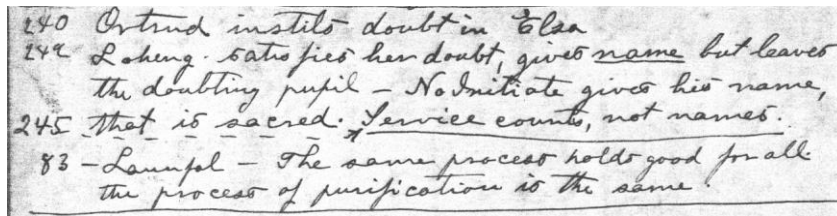 240 Ortrud instils doubt in Elsa
242 Loheng. satisfies her doubt, gives name but leaves
the doubting pupil - No Initiate gives his name,
245 that is sacred. Service counts, not names.
83 - Launfal - The same process holds good for all
the process of purification is the same.